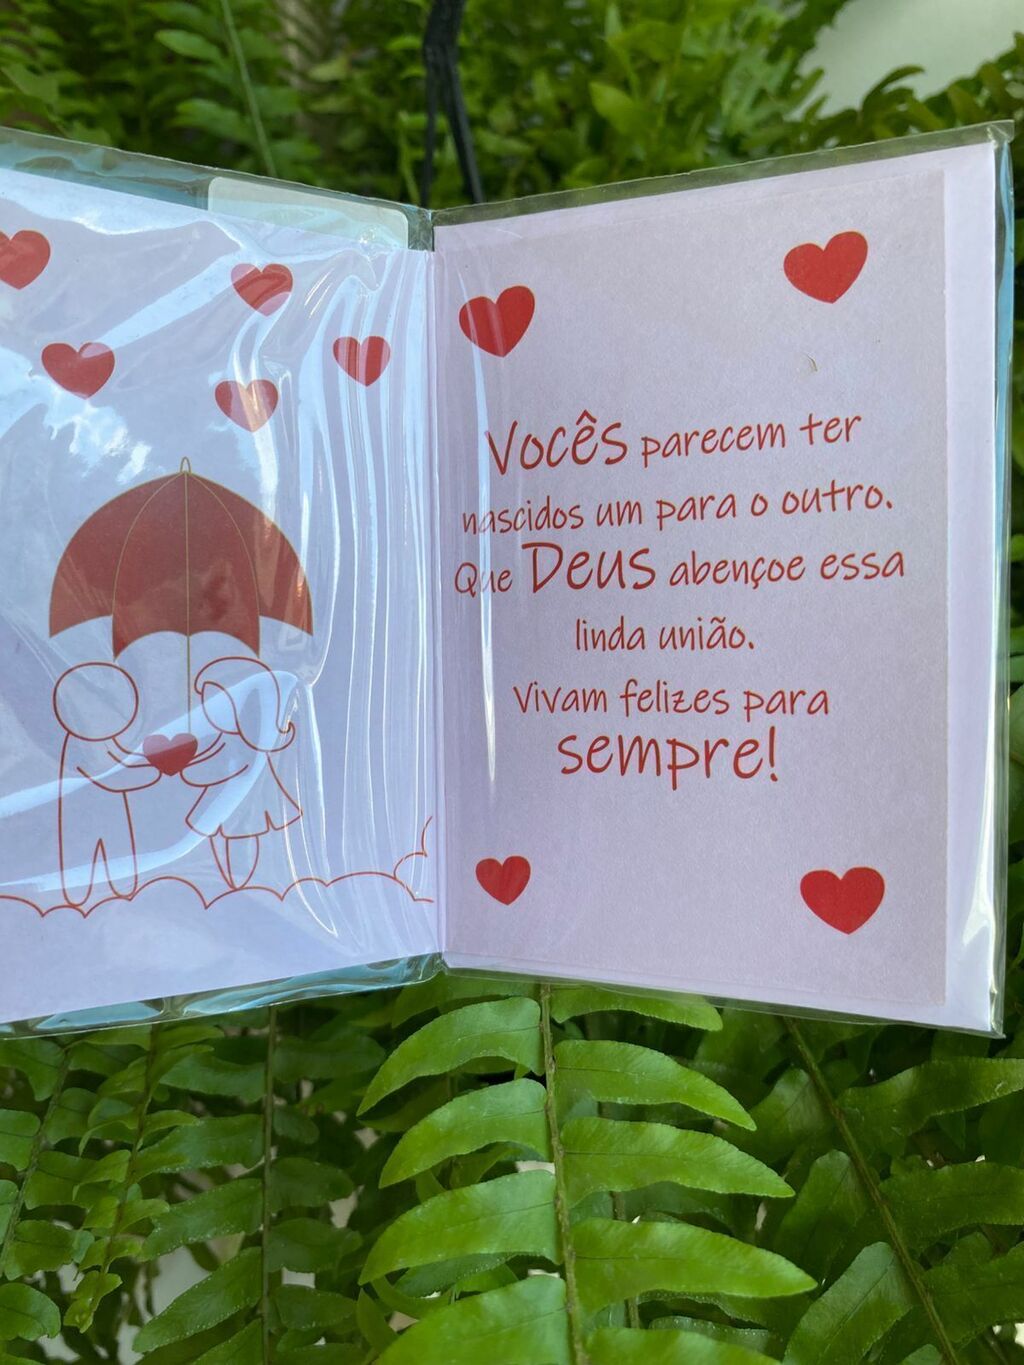 Vocês parecem ter
nascidos um para o outro.
Que Deus abençoe essa
linda união.
Vivam felizes para
sempre!